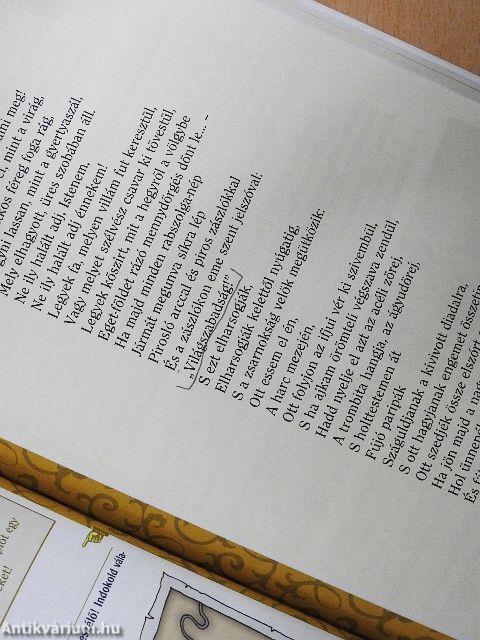 meg!
mint a virág,
féreg foga rág,
lassan, mint a gyertyaszál,
Mely elhagyott, üres szobában áll.
Ne ily halált adj, Istenem,
Ne ily halált adj énnekem!
Legyek fa, melyen villám fut keresztül,
Vagy melyet szélvész csavar ki tövestül,
Legyek kőszirt, mit a hegyről a völgybe
Eget-földet rázó mennydörgés dönt le... –
Ha majd minden rabszolga-nép
Jármát megunva síkra lép
Pirosló arccal és piros zászlókkal
És a zászlókon eme szent jelszóval:
„Világszabadság!”
S ezt elharsogják,
Elharsogják kelettől nyúgatig,
S a zsarnokság velök megütközik:
Ott essem el én,
A harc mezején,
Ott folyjon az ifjui vér ki szivembül,
S ha ajkam örömteli végszava zendül,
Hadd nyelje el azt az acéli zörej,
A trombita hangja, az ágyudörej,
S holttestemen át
Fújó paripák
Száguldjanak a kivívott diadalra,
S ott hagyjanak engemet összetip
Ott szedjék össze elszórt
Ha jön majd a nag
Hol ünnep
És
egy
Indokold vála-
Antikvárium.hu